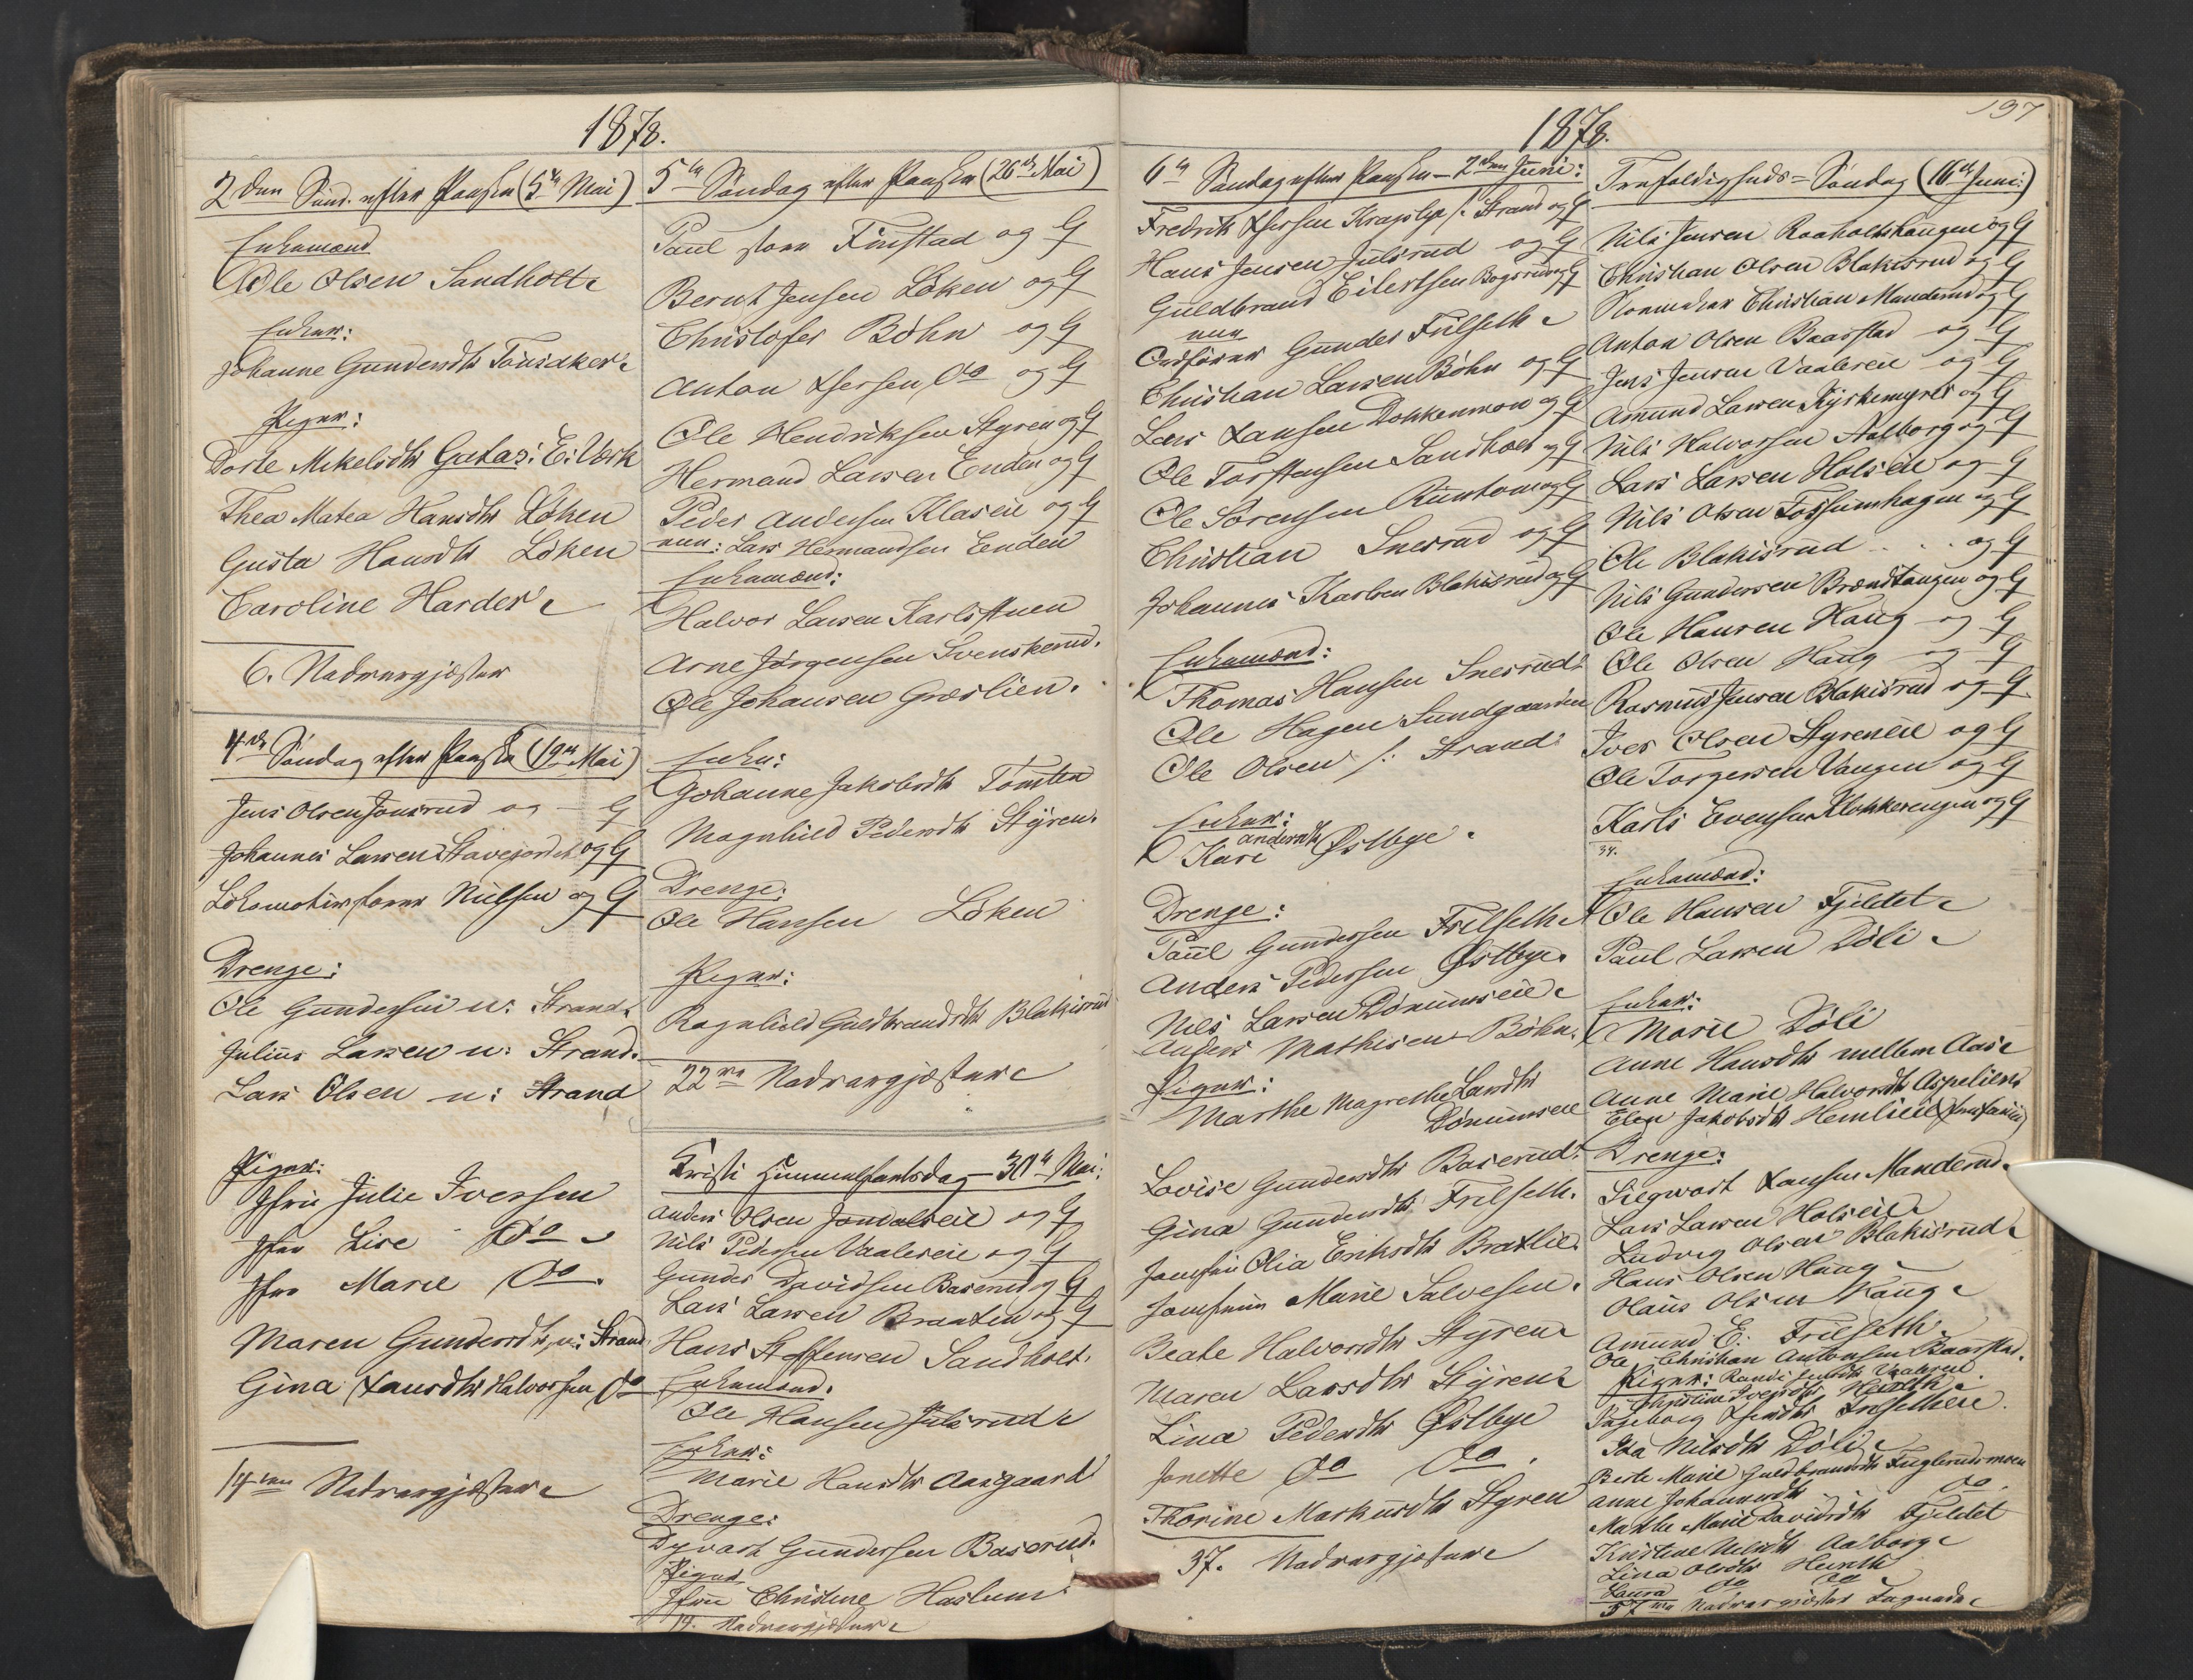 1878.
2den Sønd. efter Paaske (5te Mai)
Enkemænd
Ole Olsen Sandholt
Enker:
Johanne Gundersdtr Tousaker
Piger:
Dorte Mikelsdtr Gutas: E: Værk
Thea Matea Hansdtr Løken
Gusta Hansdtr Løken
Caroline Harder
6. Nadvergjæster
4de Søndag efter Paaske (19de Mai)
Jens Olsen Jonsrud og G
Johannes Larsen Stavejordet og G
Lokomotivfører Nielsen og G
Drenge:
Ole Gundersen n: Strand
Julius Larsen n: Strand
Lars Olsen n: Strand
Piger:
Jfru Julie Iversen
Jfru Lise Do
Jfru Marie Do
Maren Gundersdtr n: Strand
Gina Larsdtr Halvorsen Do
14ten Nadvergjæster
5te Søndag efter Paaske (26de Mai)
Paul store Finstad og G
Bernt Jensen Løken og G
Christofer Bøhn og G
Anton Do og G
Ole Hendriksen Styren og G
Hermand Larsen Enden og G
Peder Andersen Klaseie og G
Lars Hermandsen Eenden
Enkemænd:
Halvor Larsen Karlsstuen
Arne Jørgensen Svenskerud.
Ole Johansen Græslien.
Enker:
Johanne Jakobsdtr Tomten
Magnhild Pedersdtr Styren
Drenge:
Ole Hansen Løken
Piger:
Ragnhild Guldbrandsdtr Blakisrud
22 Nadvergjæster
Kristi Himmelfartsdag – 30te Mai:
Anders Olsen Jondalseie og G
Nils Pedersen Vaaleseie og G
Gunder Davidsen Baserud og G
Lars Larsen Braaten og G
Hans Steffensen Sandholt
Enkemænd.
Ole Hansen Julsrud
Enker:
Marie Hansdtr Aasgaard
Drenge:
Dyvart Gundersen Baserud.
Piger
Jfru Christine Haslum
14. Nadvergjæster
197
1878.
6te Søndag efter Paaske – 2den Juni:
Fredrik Strand og G
Hans Jensen Julsrud og G
Guldbrand Eilertsen Bogsrud og G
Ordfører Gunder Frilseth
Christian Larsen Bøhn og G
Lars Hansen Dokkenmoen og G
Ole Torstensen Sandholt og G
Ole Sørensen og G
Christian Snesrud og G
Johannes Karlsen Blakisrud og G
Enkemænd:
Thomas Hansen Snesrud
Ole Hagen Sundgaarden
Ole Olsen s: Strand
Enker:
Kari Andersdtr Østbye
Drenge:
Paul Gundersen Frilseth
Anders Pedersen Østbye.
Nils Larsen Dønnumseie
Anders Mathisen Bøhn.
Piger:
Marthe Magrethe Larsdtr
Dønnumseie
Lovise Gundersdtr Baserud
Gina Gundersdtr Frilseth.
Jomfru Olia Eriksdtr Bratlie
Jomfru Marie Salvesen.
Beate Halvorsdtr Styren
Maren Larsdtr Styren
Lina Pedersdtr Østbye
Janette Do Do.
Thorine Markusdtr Styren
37. Nadvergjæster
Trefoldigheds-Søndag (16de Juni)
Nils Jensen Raaholtshaugen og G
Christian Olsen Blakisrud og G
Christian Manderud og G
Anton Olsen Baarstad og G
Jens Jensen Vaaleseie og G
Amund Larsen Kyrkemyrer og G
Nils Halvorsen Aalborg og G
Lars Larsen Holseie og G
Nils Olsen Fossumhagen og G
Ole Blakisrud . . . og G
Nils Gundersen Brændtangen og G
Ole Hansen Haug og G
Ole Olsen Haug og G
Rasmus Jensen Blakisrud og G
Iver Olsen Styreneie og G
Ole Torgersen Vangen og G
Karls Evensen Klokkerengen og G
34.
Enkemænd:
Ole Hansen Fjeldet
Paul Larsen Døli
Enker:
Marie Døli
Anne Hansdtr mellem Aas
Anne Marie Halvorsdtr Aspelien
Elen Jakobsdtr Hemlieie
Drenge:
Siegwart Hansen Manderud.
Lars Larsen Holseie
Ludvig Olsen Blakisrud
Hans Olsen Haug
Olaus Olsen Haug
Amund E: Frilseth
Ole Christian Antonsen Baarstad.
Piger: Randi Vaaleeie
Christine Iversdtr
Ingeborg
Ida Nilsdtr Døli
Berte Marie Guldbrandsdtr Fuglerudsmoen
Anne Johannesdtr Do.
Mathe Marie Davidsdtr Fjeldet
Kristine Nilsdtr Aalborg
Lina Olsdtr
Laura Do Do
57 Nadvergjæster